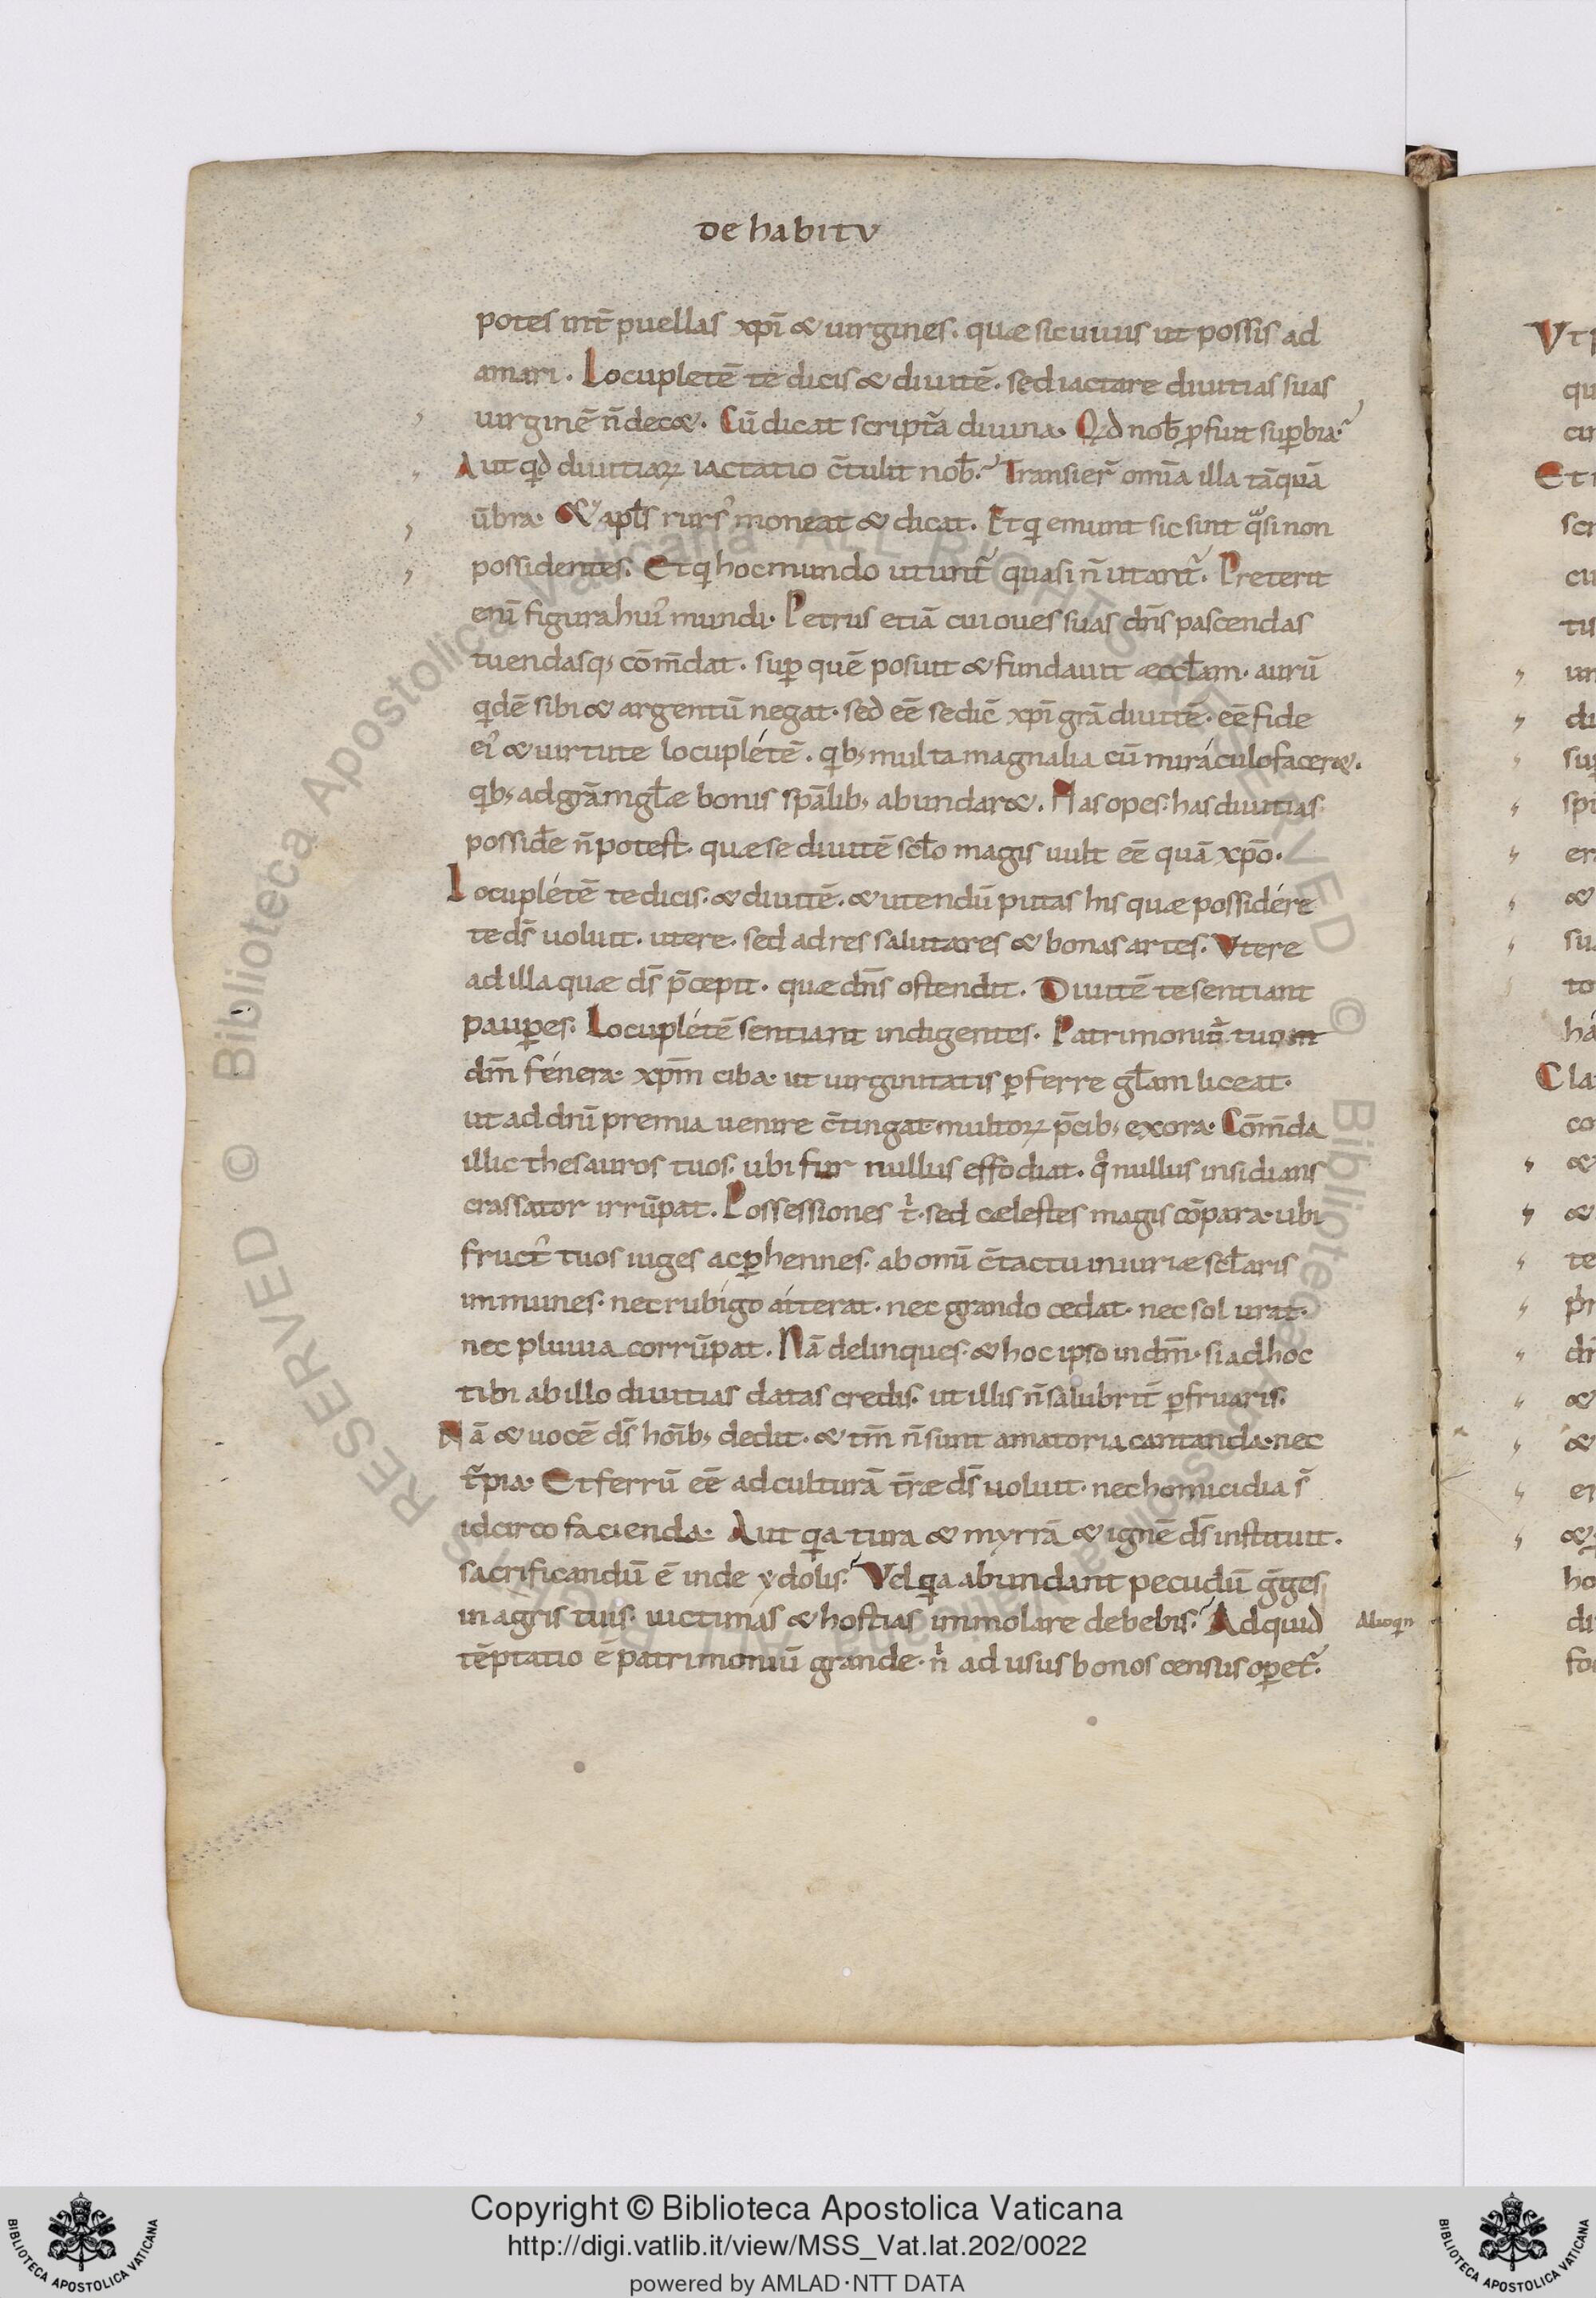 de habitv
potes int̄ puellas xp̄i & uirgines. quæ sic uiuis ut possis ad
amari. Locupletē te dicis & diuitē. sed iactare diuitias suas
uirginē n̄ dec&. Cū dicat script̄a diuina. Qd nob̄ ꝓfuit suꝑbia.
Aut qd diuitiaꝝ iactatio c̄tulit nob̄. Transier̄ om̄ia illa tāquā
ūbra. & apl̄s rurs᾽ moneat & dicat. Et q emunt sic sint qͣsi non
possidentes. Et q hoc mundo utunt̄ quasi n̄ utant̄. Preterit
enī figura hui᾽ mundi. Petrus etiā cui oues suas dn̄s pascendas
tuendasq; cōm̄dat. suꝑ quē posuit & fundauit æccl̄am. aurū
qdē sibi & argentū negat. sed eē se dic̄ xp̄i grā diuitē. eē fide
ei᾽ & uirtute locuplétē. qb; multa magnalia cū miráculo facer&.
qb; ad grām gl̄æ bonis spālib; abundar&. Has opes. has diuitias
possid̄e n̄ potest. quæ se diuitē scl̄o magis uult eē quā xp̄o.
Locuplétē te dicis. & diuitē. & utendū putas his quæ possidére
te ds̄ uoluit. utere. sed ad res salutares & bonas artes. Vtere
ad illa quæ ds̄ p̄cepit. quæ dn̄s ostendit. Diuitē te sentiant
pauꝑes. Locuplétē sentiant indigentes. Patrimoniū tuo
dm̄ fénera. xp̄m ciba. ut uirginitatis ꝑferre gl̄am liceat.
ut ad dnī premia uenire c̄tingat multoꝝ p̄cib; exora. Cōm̄da
illic thesauros tuos. ubi fur nullus effodiat. qͦ nullus insidians
crassator irrūpat. Possessiones t̄. sed cælestes magis cōpara. ubi
fruct᾽ tuos iuges ac ꝑhennes. ab omī c̄tactu iniuriæ scl̄aris
immunes. nec rubígo átterat. nec grando cedat. nec sol urat.
nec pluuia corrūpat. Nā delinques. & hoc ipso in dm̄. si ad hoc
tibi ab illo diuitias datas credis. ut illis n̄ salubrit̄ ꝑfruaris.
Nā & uocē ds̄ hoīb; dedit. & tm̄ n̄ sunt amatoria cantanda. nec
t̄pia. Et ferrū eē ad culturā t̄ræ ds̄ uoluit. nec homicidia s̄
idcirco facienda. Aut qa tura & myrrā & ignē ds̄ instituit.
sacrificandū ē inde ydolis. Vel qa abundant pecudū ḡges
in agris tuis. uictimas & hostias immolare debebis. Ad quid
Alioqn
tēptatio ē patrimoniū grande. n̄ ad usus bonos census oꝑet̄.
Copyright © Biblioteca Apostolica Vaticana
http://digi.vatlib.it/view/MSS_Vat.lat.202/0022
powered by AMLAD·NTT DATA